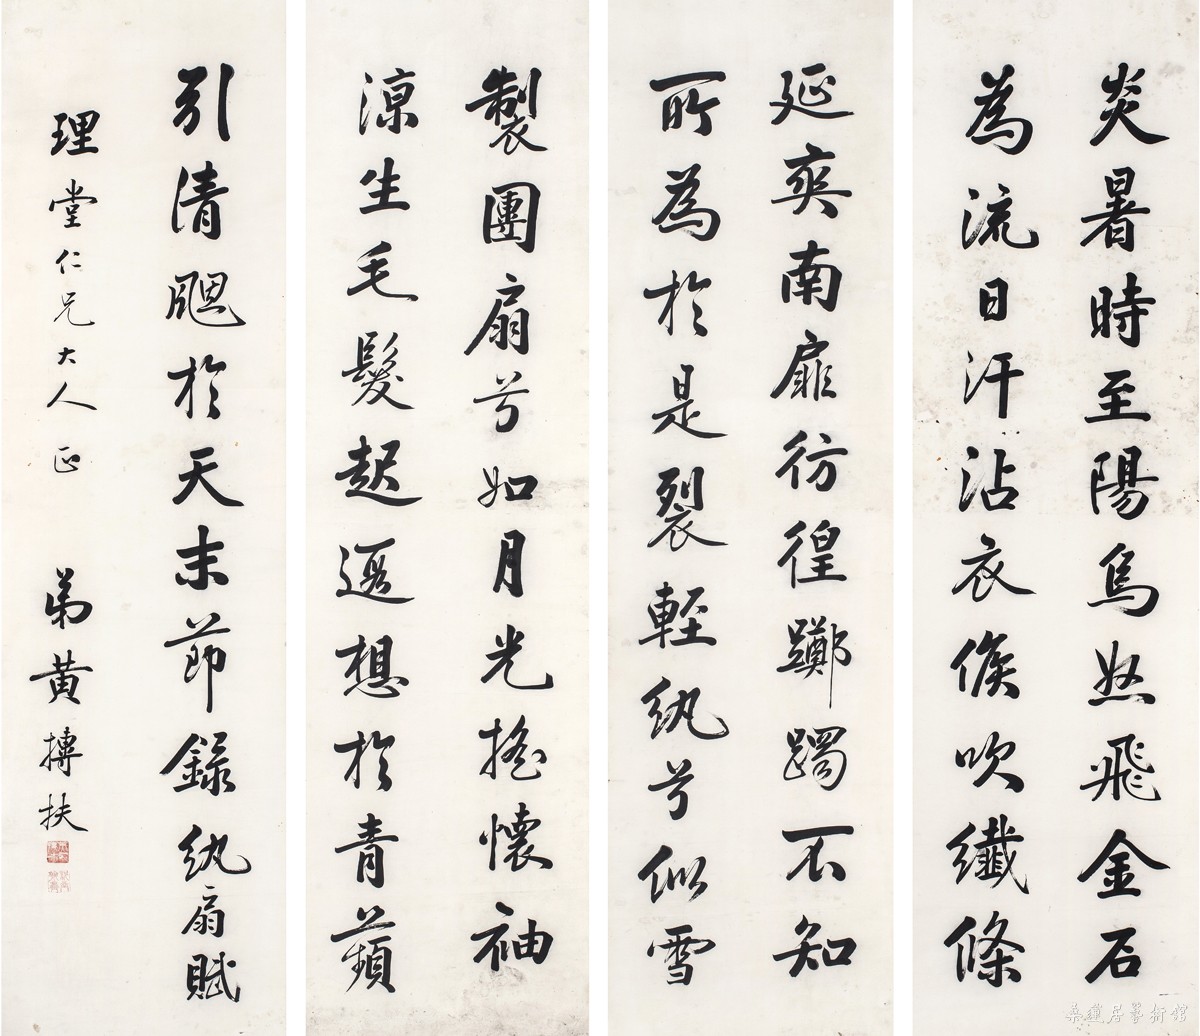 炎暑時至陽烏怒飛金石
為流日汗沾衣候吹纖條
延爽南扉彷徨躑躅不知
所為於是裂輕紈兮似雪
製團扇兮如月光搖懷袖
涼生毛髮起遐想於青蘋
引清颸於天末節錄紈扇賦
理堂仁兄大人正 弟黃搏扶
桑蓮居藝術館